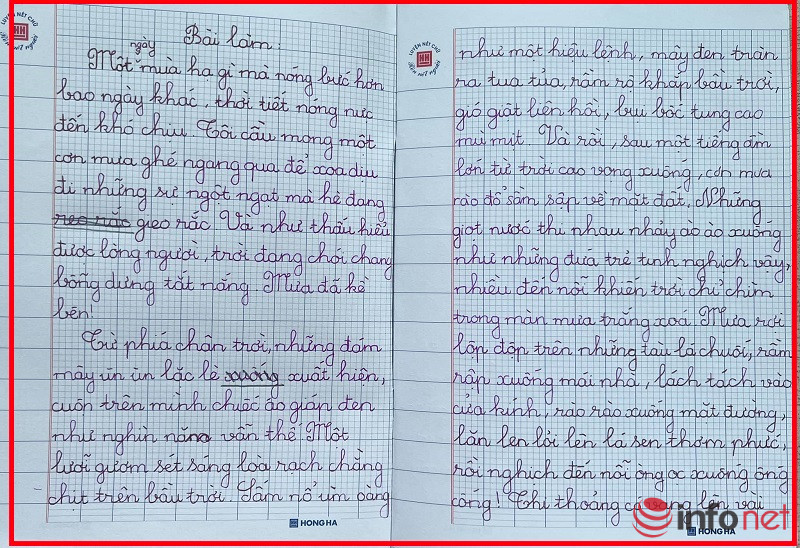 Bài làm:
ngày
Một mùa hạ gì mà nóng bức hơn
bao ngày khác, thời tiết nóng nực
đến khó chịu. Tôi cầu mong một
cơn mưa ghé ngang qua để xoa dịu
đi những sự ngột ngạt mà hè đang
gieo rắc. Và như thấu hiểu
được lòng người, trời đang chói chang
bỗng dưng tắt nắng. Mưa đã kề
bên!
Từ phía chân trời, những đám
mây ùn ùn lặc lè xuất hiện,
cuộn trên mình chiếc áo giáp đen
như nghìn năm vẫn thế. Một
lưỡi gươm sét sáng loà rạch chằng
chịt trên bầu trời. Sấm nổ ùm oàng
như một hiệu lệnh, mây đen tràn
ra tua tủa, rầm rộ khắp bầu trời,
gió giật liên hồi, bụi bốc tung cao
mù mịt. Và rồi, sau một tiếng ầm
lớn từ trời cao vọng xuống, cơn mưa
rào đổ sầm sập về mặt đất. Những
giọt nước thi nhau nhảy ào ào xuống
như những đứa trẻ tinh nghịch vậy,
nhiều đến nỗi khiến trời chỉ chìm
trong màn mưa trắng xoá. Mưa rơi
lộp độp trên những tàu lá chuối, rầm
rập xuống mái nhà, lách tách vào
cửa kính, rào rào xuống mặt đường,
lăn len lỏi lên lá sen thơm phức,
rồi nghịch đến nỗi òng ọc xuống ống
cống! Thi thoảng có vang lên vài
HONG HA
infonet
HONG HA